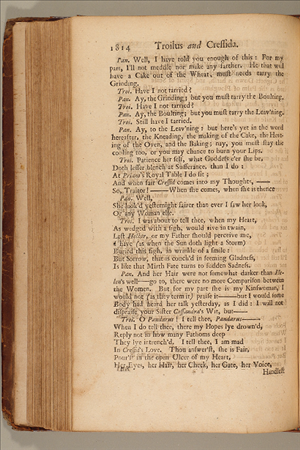 1814 Troilus and Cressida.
Pan. Well, I have told you enough of this: For my
part, I'll not meddle nor make any farther. He that will
have a Cake out of the Wheat, must needs tarry the
Grinding.
Troi. Have I not tarried?
Pan. Ay, the Grinding; but you must tarry the Boulting.
Troi. Have I not tarried?
Pan. Ay, the Boulting; but you must tarry the Leav'ning.
Troi. Still have I tarried.
Pan. Ay, to the Leav'ning: but here's yet in the word
hereafter, the Kneading, the making of the Cake, the Heat-
ing of the Oven, and the Baking; nay, you must stay the
cooling too, or you may chance to burn your Lips.
Troi. Patience her self, what Goddess e'er she be,
Doth lesser blench at Sufferance, than I do:
At Priam's Royal Table I do sit;
And when fair Cressid comes into my Thoughts, ——
So, Traitor! —— When she comes, when she is thence
Pan. Well,
She look'd yesternight fairer than ever I saw her look,
Or any Woman else.
Troi. I was about to tell thee, when my Heart,
As wedged with a sigh, would rive in twain,
Lest Hector, or my Father should perceive me,
I have (as when the Sun doth light a Storm)
Buried this sigh, in wrinkle of a smile:
But Sorrow, that is couch'd in seeming Gladness,
Is like that Mirth Fate turns to sudden Sadness.
Pan. And her Hair were not somewhat darker than He-
len's well—go to, there were no more Comparison between
the Women. But for my part she is my Kinswoman, I
would not (as they term it) praise it—but I would some
Body had heard her talk yesterday, as I did: I will not
dispraise your Sister Cassandra's Wit, but——
Troi. O Pandarus! I tell thee, Pandarus——
When I do tell thee, there my Hopes lye drown'd,
Reply not in how many Fathoms deep
They lye intrench'd. I tell thee, I am mad
In Cressid's Love. Thou answer'st, she is Fair,
Pour'st in the open Ulcer of my Heart,
Her Eyes, her Hair, her Cheek, her Gate, her Voice,
Handlest